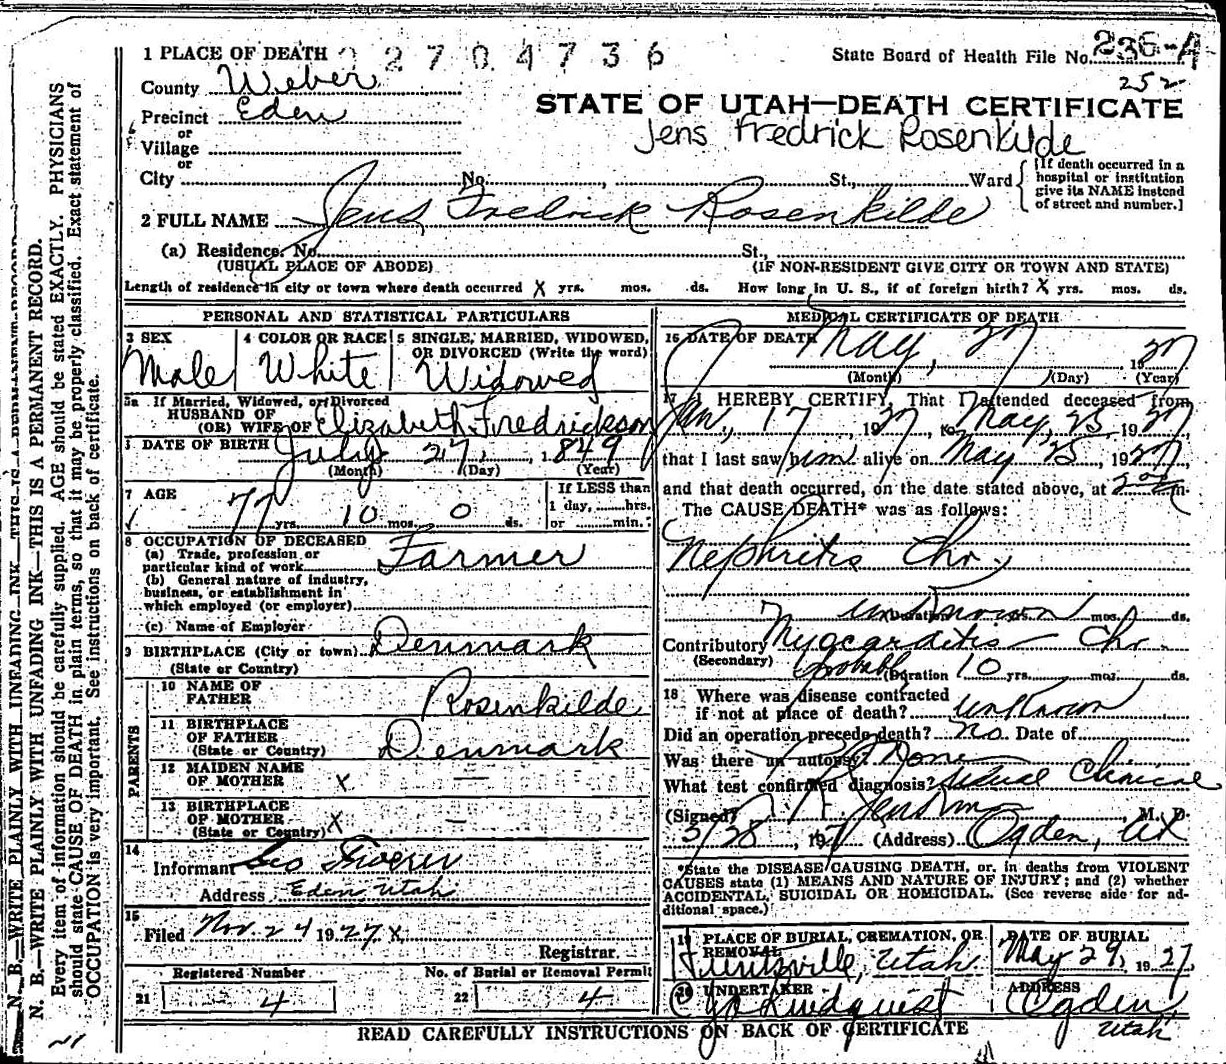 1 PLACE OF DEATH 2 2 7 0 4 7 3 6 State Board of Health File No. 236-A
252
County Weber
STATE OF UTAH—DEATH CERTIFICATE
Precinct Eden
Jens Fredrick Rosenkilde
or
Village
or
City No. , St., Ward
[If death occurred in a
hospital or institution
give its NAME instead
of street and number.]
2 FULL NAME Jens Fredrick Rosenkilde
(a) Residence. No. St.,
(USUAL PLACE OF ABODE) (IF NON-RESIDENT GIVE CITY OR TOWN AND STATE)
Length of residence in city or town where death occurred X yrs. mos. ds. How long in U. S., if of foreign birth? X yrs. mos. ds.
PERSONAL AND STATISTICAL PARTICULARS
3 SEX 4 COLOR OR RACE 5 SINGLE, MARRIED, WIDOWED,
OR DIVORCED (Write the word)
Male White Widowed
5a If Married, Widowed, or Divorced
HUSBAND OF
(OR) WIFE OF Elizabeth Fredrickson
DATE OF BIRTH July 27, 1849
(Month) (Day) (Year)
7 AGE
77 yrs. 10 mos. 0 ds.
If LESS than
1 day, hrs.
or min.
8 OCCUPATION OF DECEASED
(a) Trade, profession or
particular kind of work Farmer
(b) General nature of industry,
business, or establishment in
which employed (or employer)
(c) Name of Employer
9 BIRTHPLACE (City or town) Denmark
(State or Country)
PARENTS
10 NAME OF
FATHER Rosenkilde
11 BIRTHPLACE
OF FATHER
(State or Country) Denmark
12 MAIDEN NAME
OF MOTHER X —
13 BIRTHPLACE
OF MOTHER
(State or Country) X —
14
Informant
Address Eden, Utah
15
Filed Nov. 24 1927 X
Registrar.
Registered Number No. of Burial or Removal Permit
21 4 22 4
MEDICAL CERTIFICATE OF DEATH
16 DATE OF DEATH May, 27, 1927
(Month) (Day) (Year)
17 I HEREBY CERTIFY, That I attended deceased from
Jan, 17, 1927, to May, 25, 1927
that I last saw him alive on May 25, 1927
and that death occurred, on the date stated above, at m.
The CAUSE DEATH* was as follows:
Nephritis Chr,
unknown
(Duration) yrs. mos. ds.
Contributory Myocarditis Chr.
(Secondary) probably (Duration 10 yrs. mos. ds.
18 Where was disease contracted
if not at place of death? unknown
Did an operation precede death? no. Date of
Was there an autopsy? None
What test confirmed diagnosis? Clinical
(Signed) M. D.
5/28, 1927 (Address) Ogden, Ut
*State the DISEASE CAUSING DEATH, or, in deaths from VIOLENT
CAUSES state (1) MEANS AND NATURE OF INJURY; and (2) whether
ACCIDENTAL, SUICIDAL OR HOMICIDAL. (See reverse side for ad-
ditional space.)
19 PLACE OF BURIAL, CREMATION, OR
REMOVAL
Huntsville, Utah
DATE OF BURIAL
May 29, 1927,
20 UNDERTAKER
Lindquist
ADDRESS
Ogden,
Utah
READ CAREFULLY INSTRUCTIONS ON BACK OF CERTIFICATE
N. B.—WRITE PLAINLY WITH UNFADING INK—THIS IS A PERMANENT RECORD
N. B.—WRITE PLAINLY WITH UNFADING INK—THIS IS A PERMANENT RECORD.
Every item of information should be carefully supplied. AGE should be stated EXACTLY. PHYSICIANS
should state CAUSE OF DEATH in plain terms, so that it may be properly classified. Exact statement of
OCCUPATION is very important. See instructions on back of certificate.